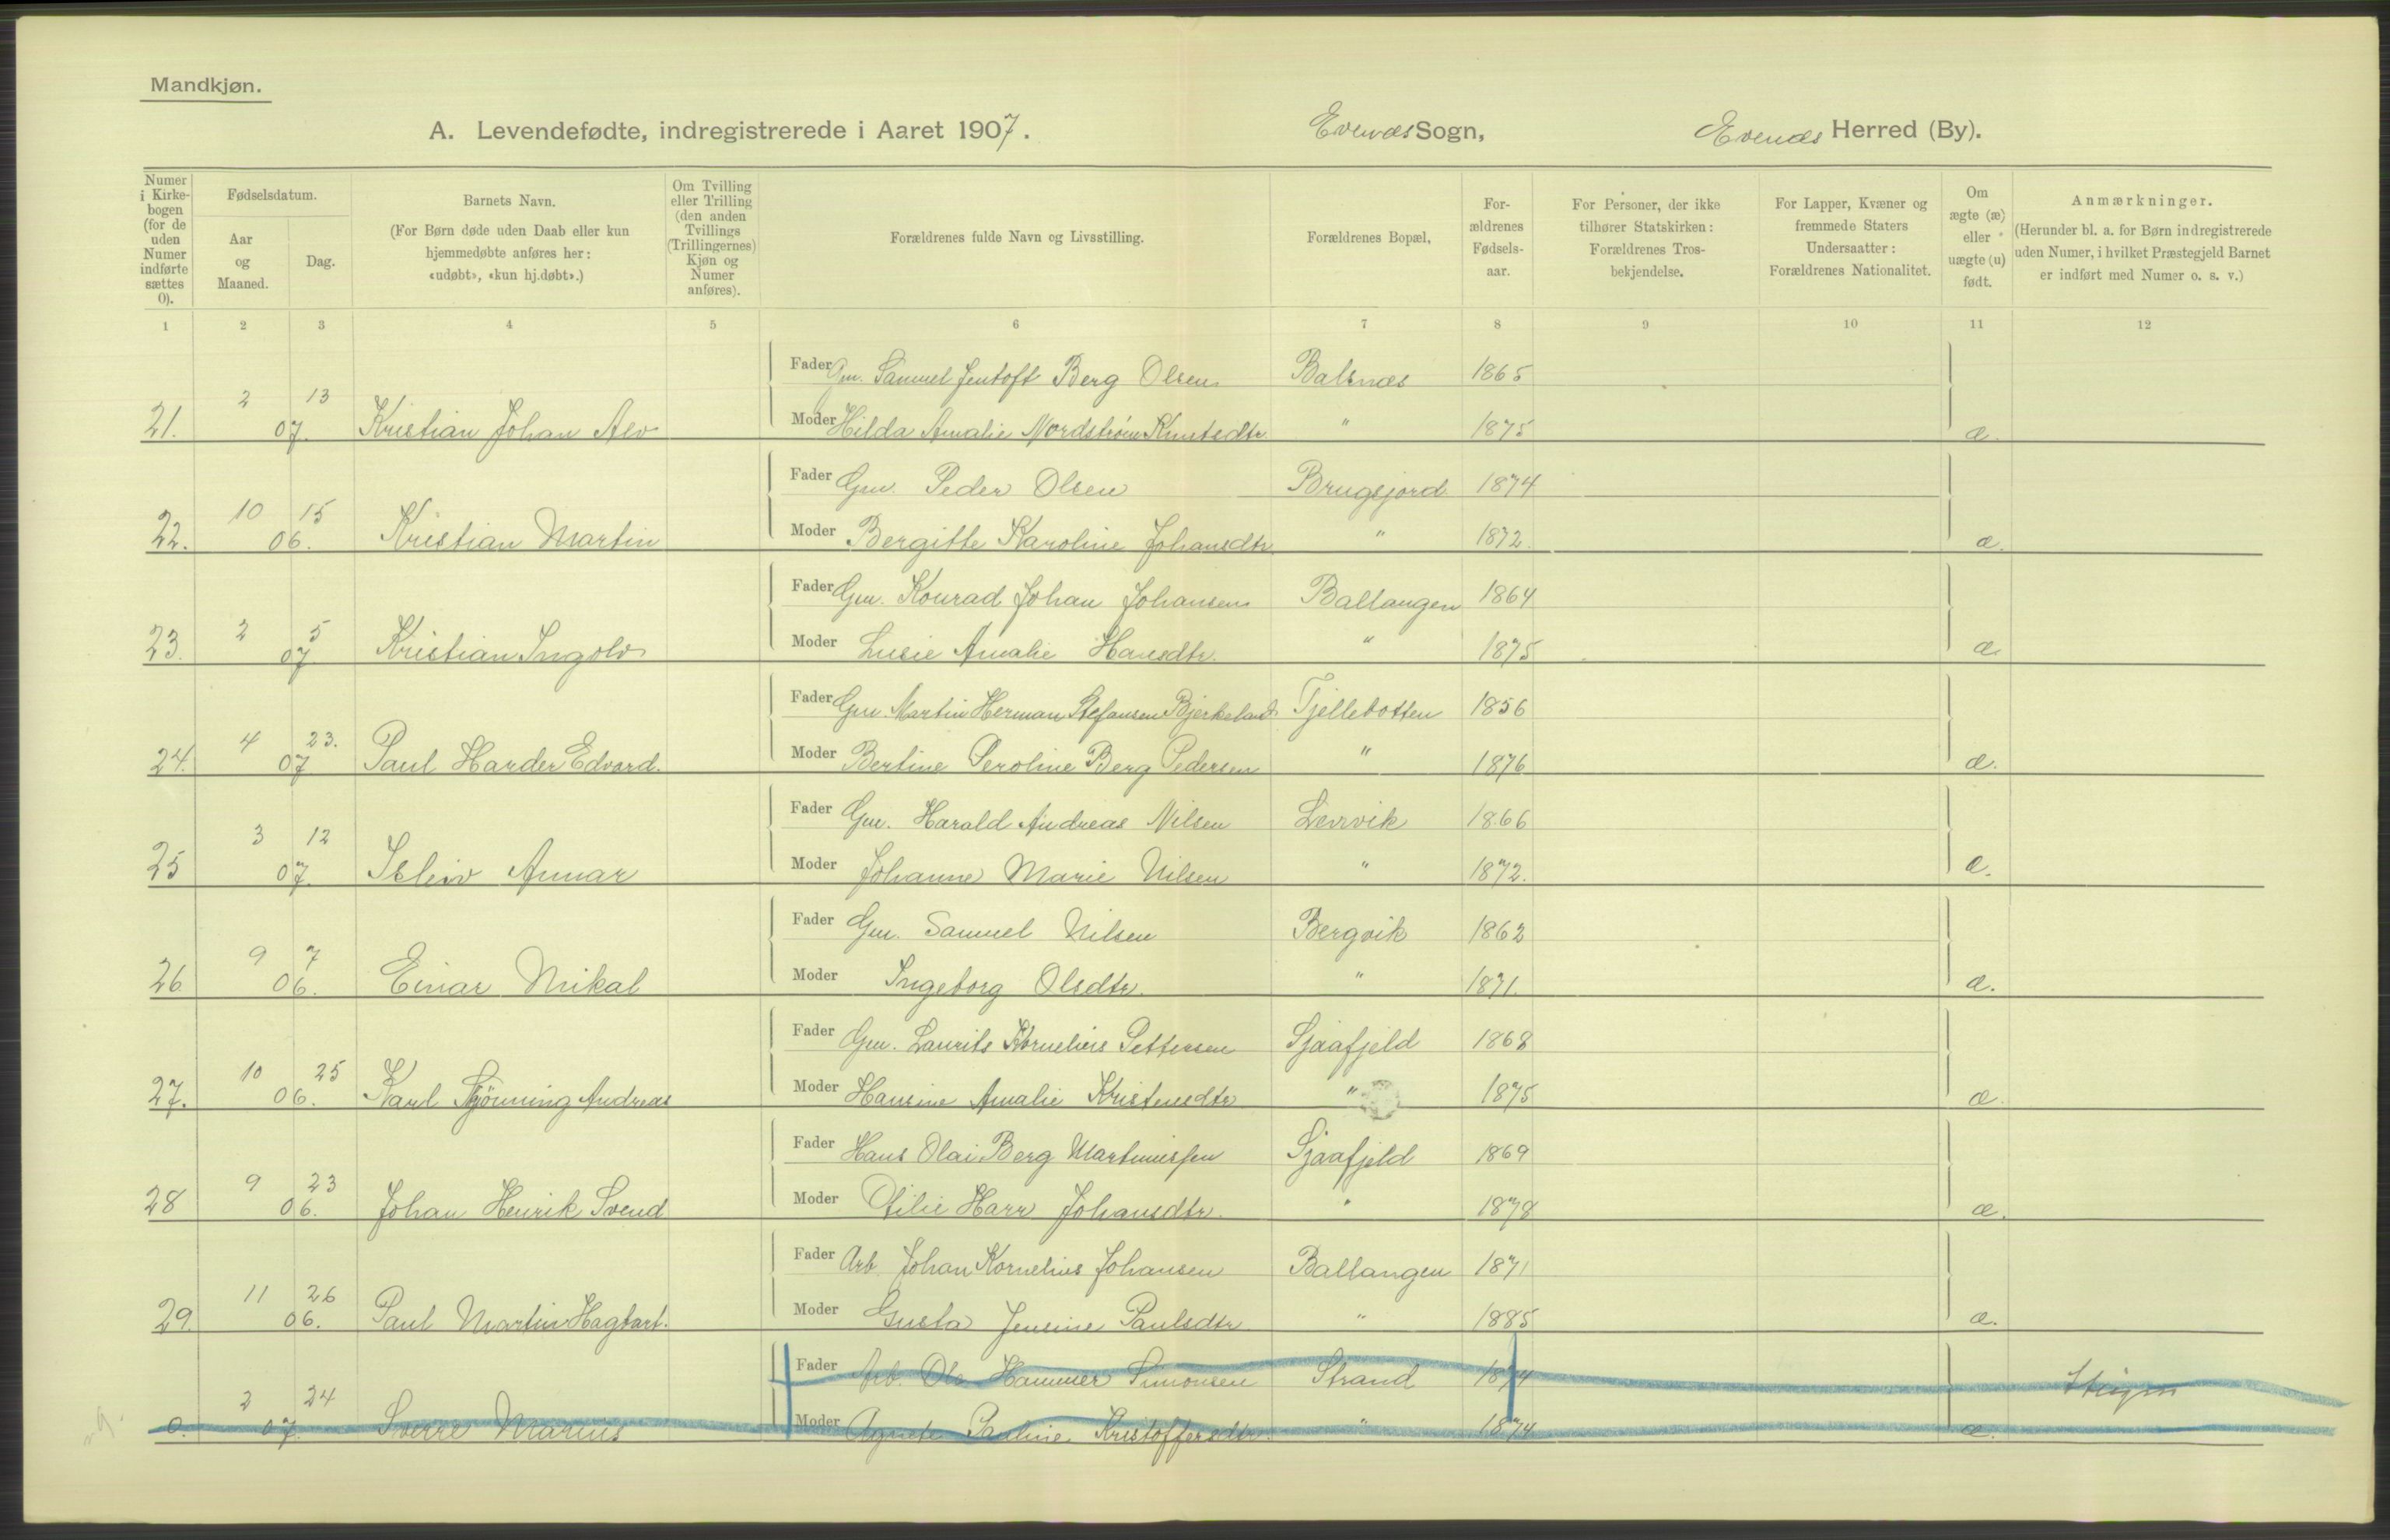 Mandkjøn.
A. Levendefødte, indregistrerede i Aaret 1907. Evenæs Sogn, Evenæs Herred (By).
Numer i Kirkebogen (for de uden Numer indførte sættes 0). Fødselsdatum. Aar og Maaned. Dag. Barnets Navn. (For Børn døde uden Daab eller kun hjemmedøbte anføres her: «udøbt», «kun hj.døbt».) Om Tvilling eller Trilling (den anden Tvillings (Trillingernes) Kjøn og Numer anføres). Forældrenes fulde Navn og Livsstilling. Forældrenes Bopæl, Forældrenes Fødselsaar. For Personer, der ikke tilhører Statskirken: Forældrenes Trosbekjendelse. For Lapper, Kvæner og fremmede Staters Undersaatter: Forældrenes Nationalitet. Om ægte (æ) eller uægte (u) født. Anmærkninger. (Herunder bl. a. for Børn indregistrerede uden Numer, i hvilket Præstegjeld Barnet er indført med Numer o. s. v.)
1 2 3 4 5 6 7 8 9 10 11 12
Fader Gm. Samuel Jentoft Berg Olsen Balsnæs 1865
21. 2 13 07. Kristian Johan Alv Moder Hilda Amalie Nordstrøm Knutsdtr. " 1875 æ.
Fader Gm. Peder Olsen Brugsjord 1874
22. 10 15 06. Kristian Martin Moder Bergitte Karoline Johansdtr. " 1872. æ.
Fader Gm. Konrad Johan Johansen Ballangen 1864
23. 2 5 07 Kristian Ingolv Moder Lucie Amalie Hansdtr. " 1875 æ.
Fader Gm. Martin Herman Stefansen Bjerkeland Tjellebotten 1856
24. 4 23. 07 Paul Harder Edvard. Moder Bertine Peroline Berg Pedersen " 1876 æ.
Fader Gm. Harald Andreas Nilsen Lervik 1866
25 3 12 07. Isleiv Annar Moder Johanne Marie Nilsen " 1872. æ.
Fader Gm. Samuel Nilsen Bergvik 1862
26 9 7 06. Einar Mikal Moder Ingeborg Olsdtr. " 1871. æ.
Fader Gm. Laurits Kornelius Pettersen Sjaafjeld 1868
27. 10 25 06. Karl Andreas Moder Hansine Amalie Kristensdtr " 1875 æ.
Fader Hans Olai Berg Martinussen Sjaafjeld 1869
28 9 23 06. Johan Henrik Svend Moder Otilie Harr Johansdtr. " 1878 æ.
Fader Arb. Johan Kornelius Johansen Ballangen 1871
29. 11 26 06. Paul Martin Hagbart. Moder Gusta Jensine Paulsdtr " 1885 æ.
Fader Arb. Ole Hammer Simonsen Strand 1874
0. 2 24 07. Sverre Marius Moder Agnete Pauline Kristoffersdtr. " 1874 æ.